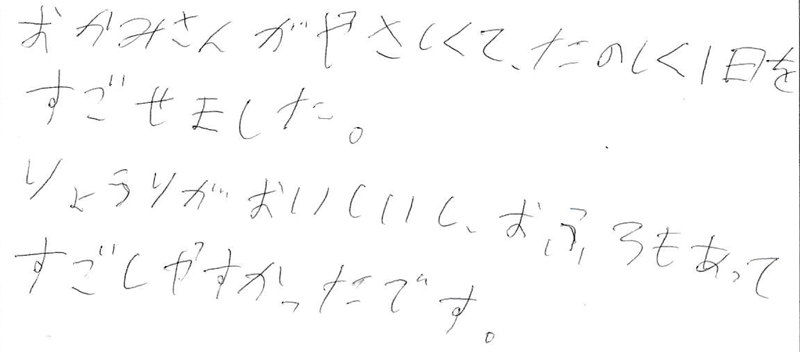 おかみさんがやさしくて、たのしく1日を
すごせました。
りょうりがおいしいし、おふろもあって
すごしやすかったです。